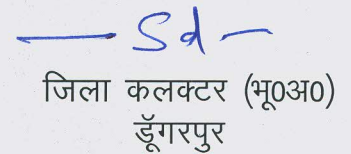 — Sd —
जिला कलक्टर (भू0अ0)
डूॅगरपुर